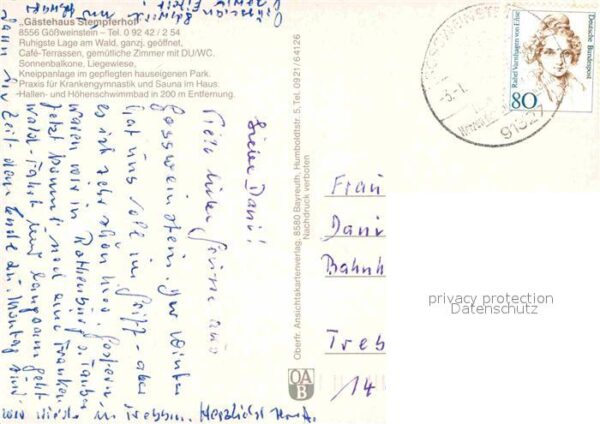 "Gästehaus Stempferhof"
8556 Gößweinstein. Tel. 0 92 42 / 2 54
Ruhigste Lage am Wald, ganzj. geöffnet,
Café-Terrassen, gemütliche Zimmer mit DU/WC.
Sonnenbalkone, Liegewiese,
Kneippanlage im gepflegten hauseigenen Park.
Praxis für Krankengymnastik und Sauna im Haus.
-Hallen- und Höhenschwimmbad in 200 m Entfernung.
Liebe Dani!
Viele liebe Grüsse aus
Gossweinstein. Der Winter
hat uns voll im Griff - aber
es ist sehr schön hier. Gestern
waren wir in Rothenburg o. Tauber
Jetzt kommt noch eine Franken
wald
und langsam geht
Zeit dem Ende zu. Montag sind
wir wieder in Trebbin. Herzlichst
Oberfr. Ansichtskartenverlag, 8580 Bayreuth, Humboldtstr. 5, Tel. 0921/64126
Nachdruck verboten
OA
B
Frau
Dani
Bahnh
Treb
/14
91327
80
Rahel Varnhagen von Ense
Deutsche Bundespost
privacy protection
Datenschutz